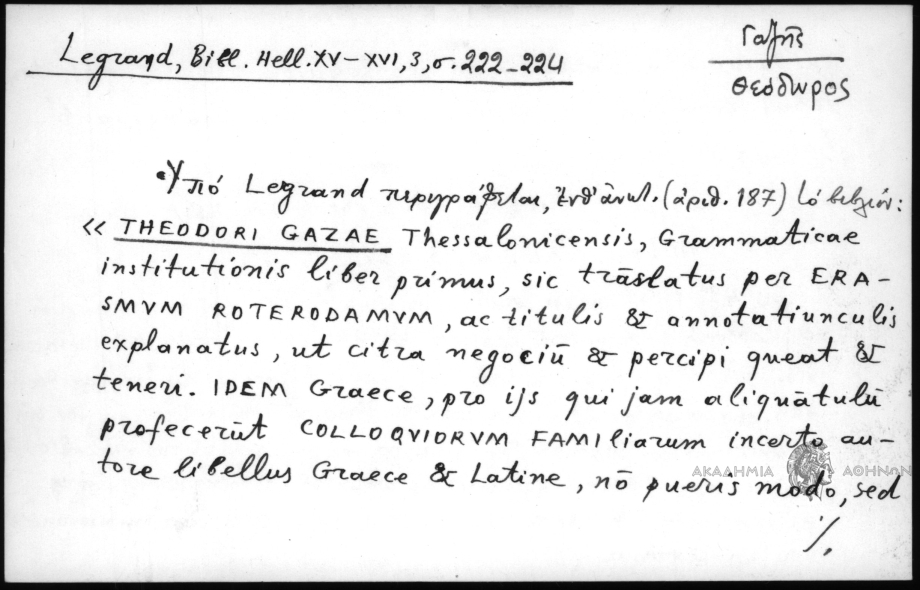 Legrand, Bibl. Hell. XV–XVI, 3, σ. 222–224
Γαζῆς
Θεόδωρος
Ὑπό Legrand περιγράφεται, ἔνθ' ἀνωτ. (ἀριθ. 187) τό βιβλίον:
« THEODORI GAZAE Thessalonicensis, Grammaticae
institutionis liber primus, sic trāslatus per ERA-
SMVM ROTERODAMVM, ac titulis & annotatiunculis
explanatus, ut citra negociū & percipi queat &
teneri. IDEM Graece, pro ijs qui jam aliquātulū
profecerūt COLLOQVIORVM FAMILiarum incerto au-
tore libellus Graece & Latine, nō pueris modo, sed
ΑΚΑΔΗΜΙΑ ΑΘΗΝΩΝ
·/.